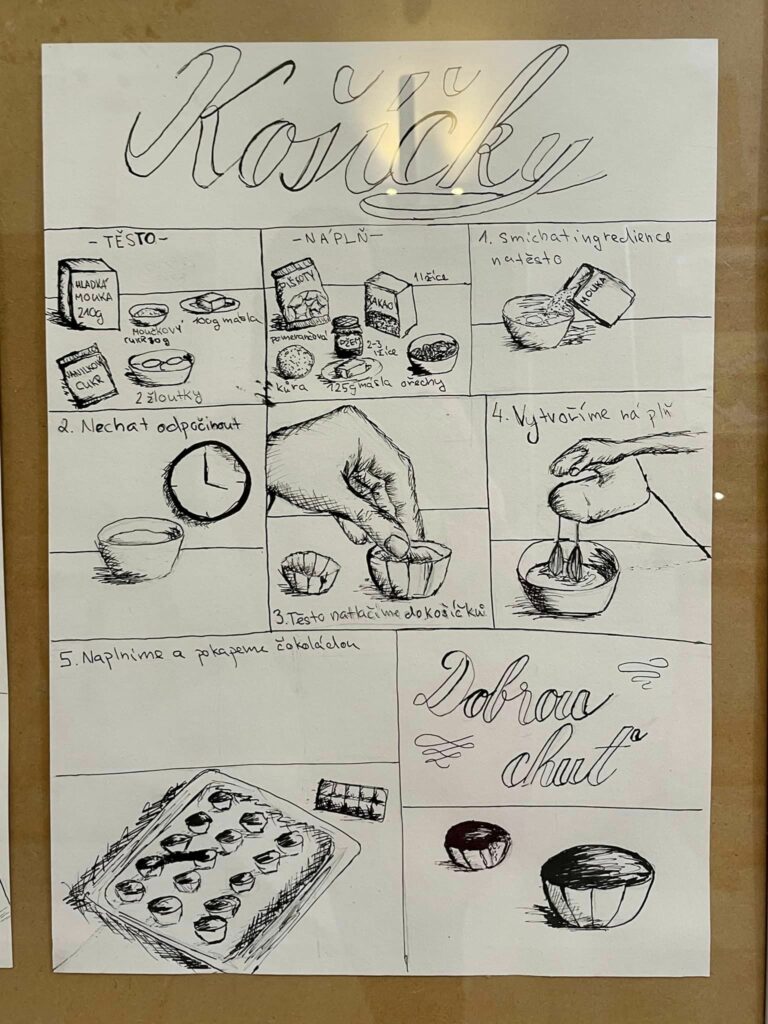 Košíčky
-TĚSTO-
HLADKÁ
MOUKA
210g
MOUČKOVÝ
CUKR 80g
100g másla
VANILKOVÝ
CUKR
2 žloutky
-NÁPLŇ-
PIŠKOTY
KAKAO
1 lžíce
pomerančová
kůra
DŽEM
2-3
lžíce
125g másla
ořechy
1. smíchat ingredience
na těsto
MOUKA
2. Nechat odpočinout
3. Těsto natlačíme do košíčků
4. Vytvoříme náplň
5. Naplníme a pokapeme čokoládou
Dobrou
chuť